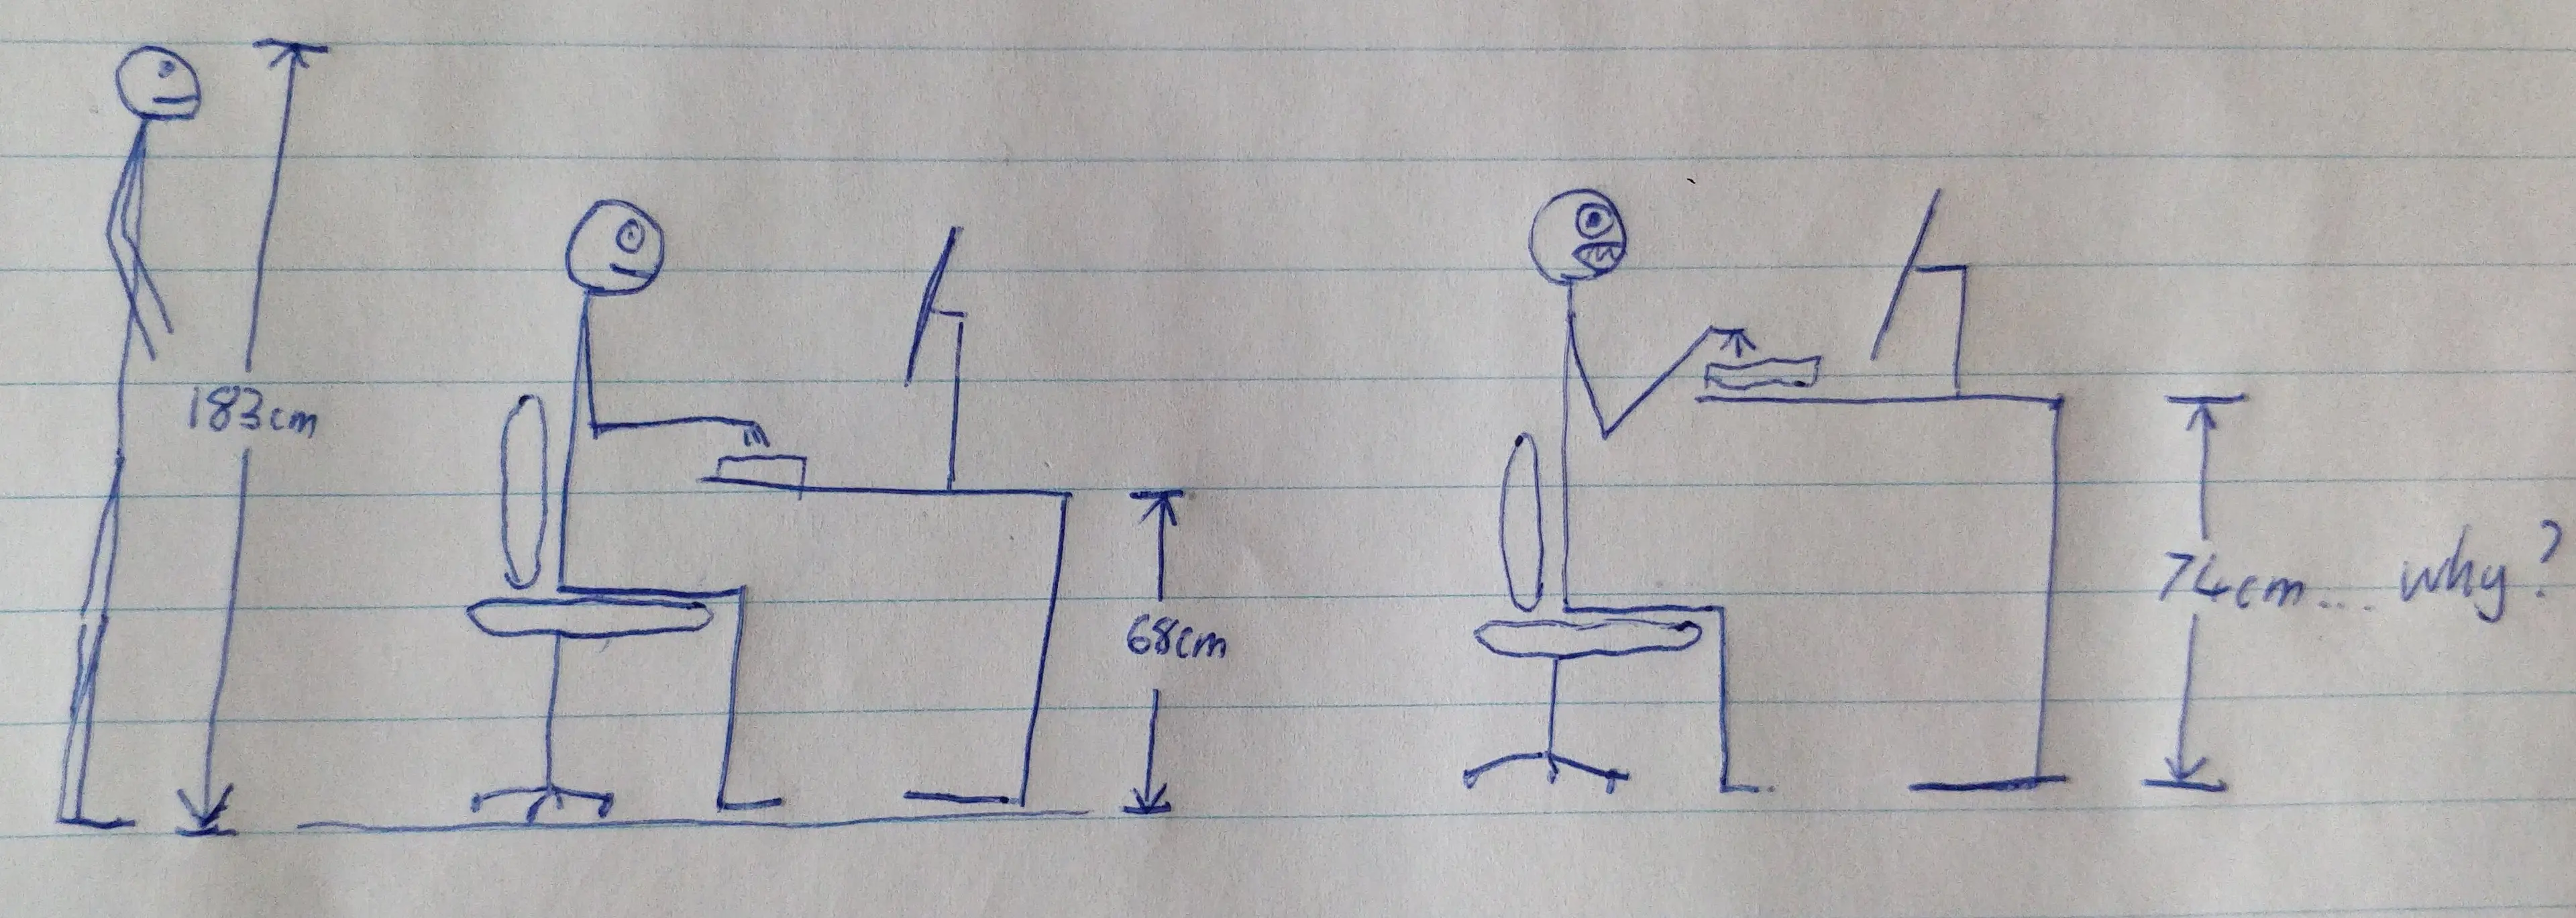 183cm
68cm
74cm... why?